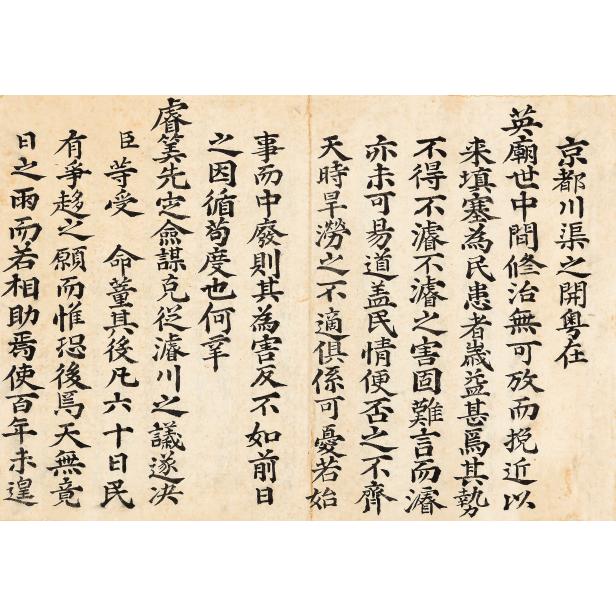 京都川渠之開粤在
英廟世中間修治無可攷而挽近以
来塡塞為民患者歲益甚焉其勢
不得不濬不濬之害固難言而濬
亦未可易道盖民情便否之不齊
天時旱澇之不適俱係可憂若始
事而中廢則其為害反不如前日
之因循苟度也何幸
睿筭先定僉謀克從濬川之議遂决
臣等受 命董其後凡六十日民
有爭趍之願而惟恐後焉天無竟
日之雨而若相助焉使百年未遑